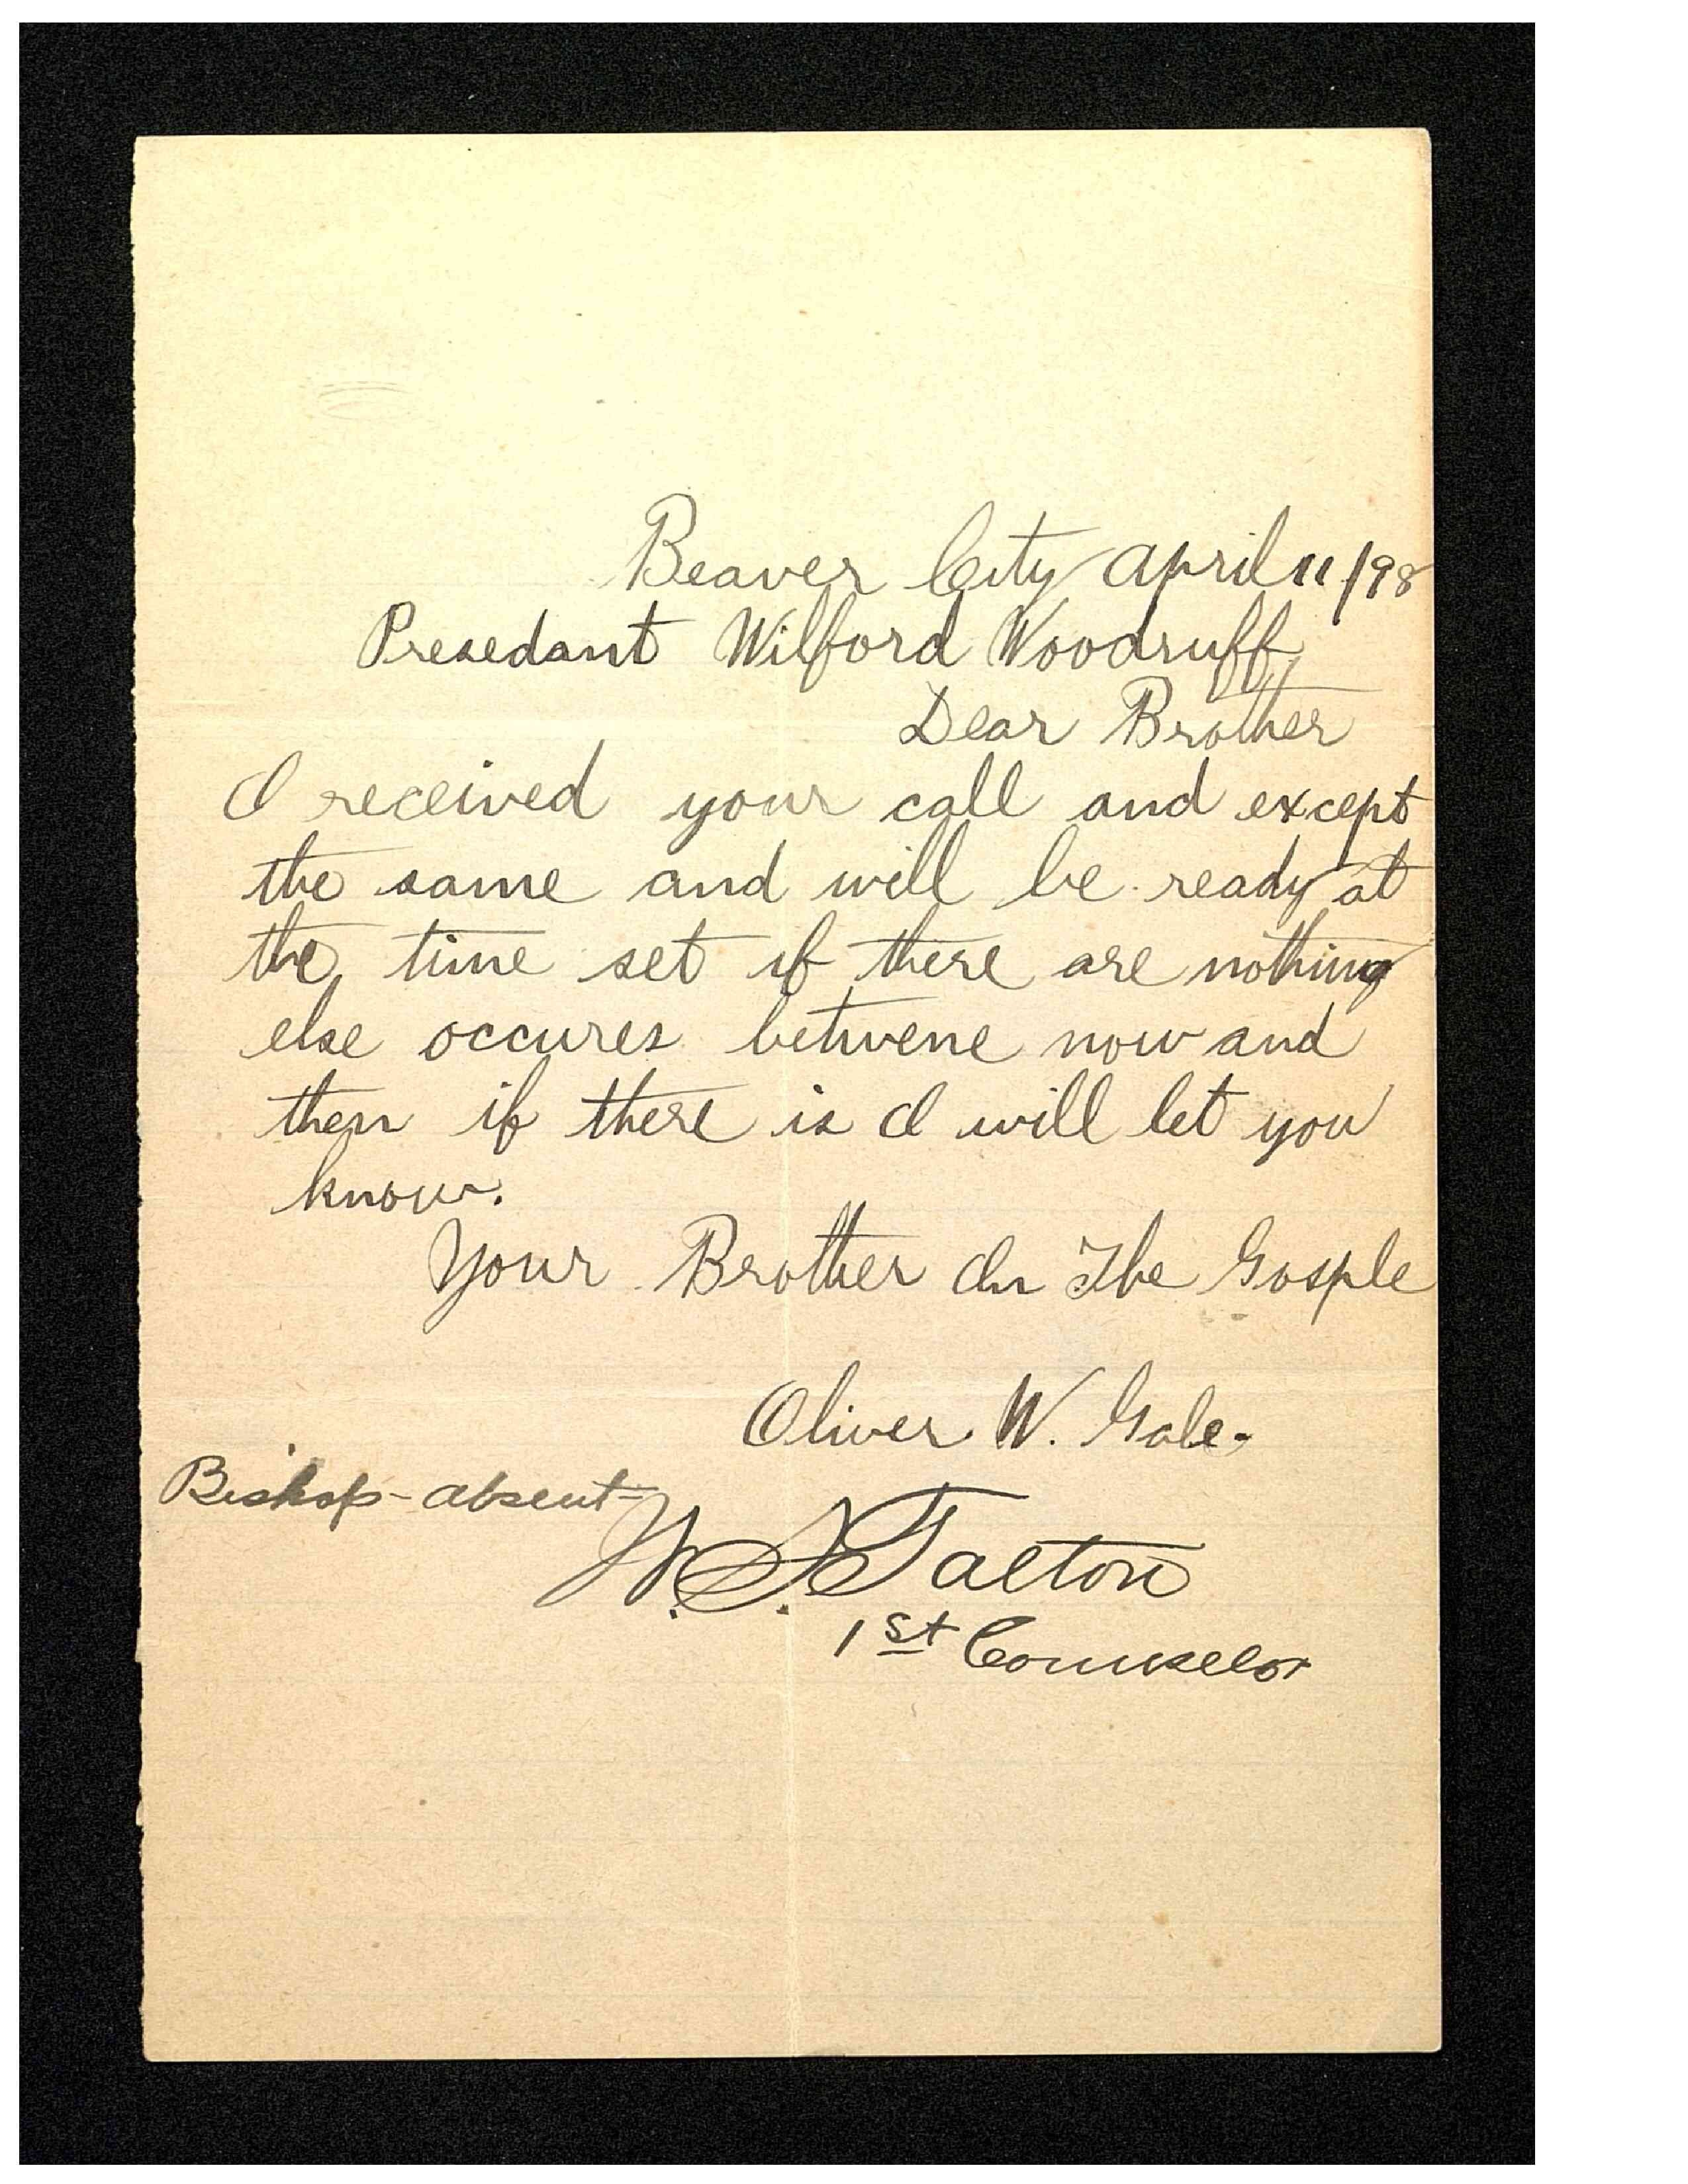 Beaver City April 11/98
Presedant Wilford Woodruff
Dear Brother
I received your call and except
the same and will be ready at
the time set if there are nothing
else occures betwene now and
then if there is I will let you
know.
Your Brother In The Gosple
Oliver W. Gale-
Bishop-absent-
W. S. Talton
1st Counselor